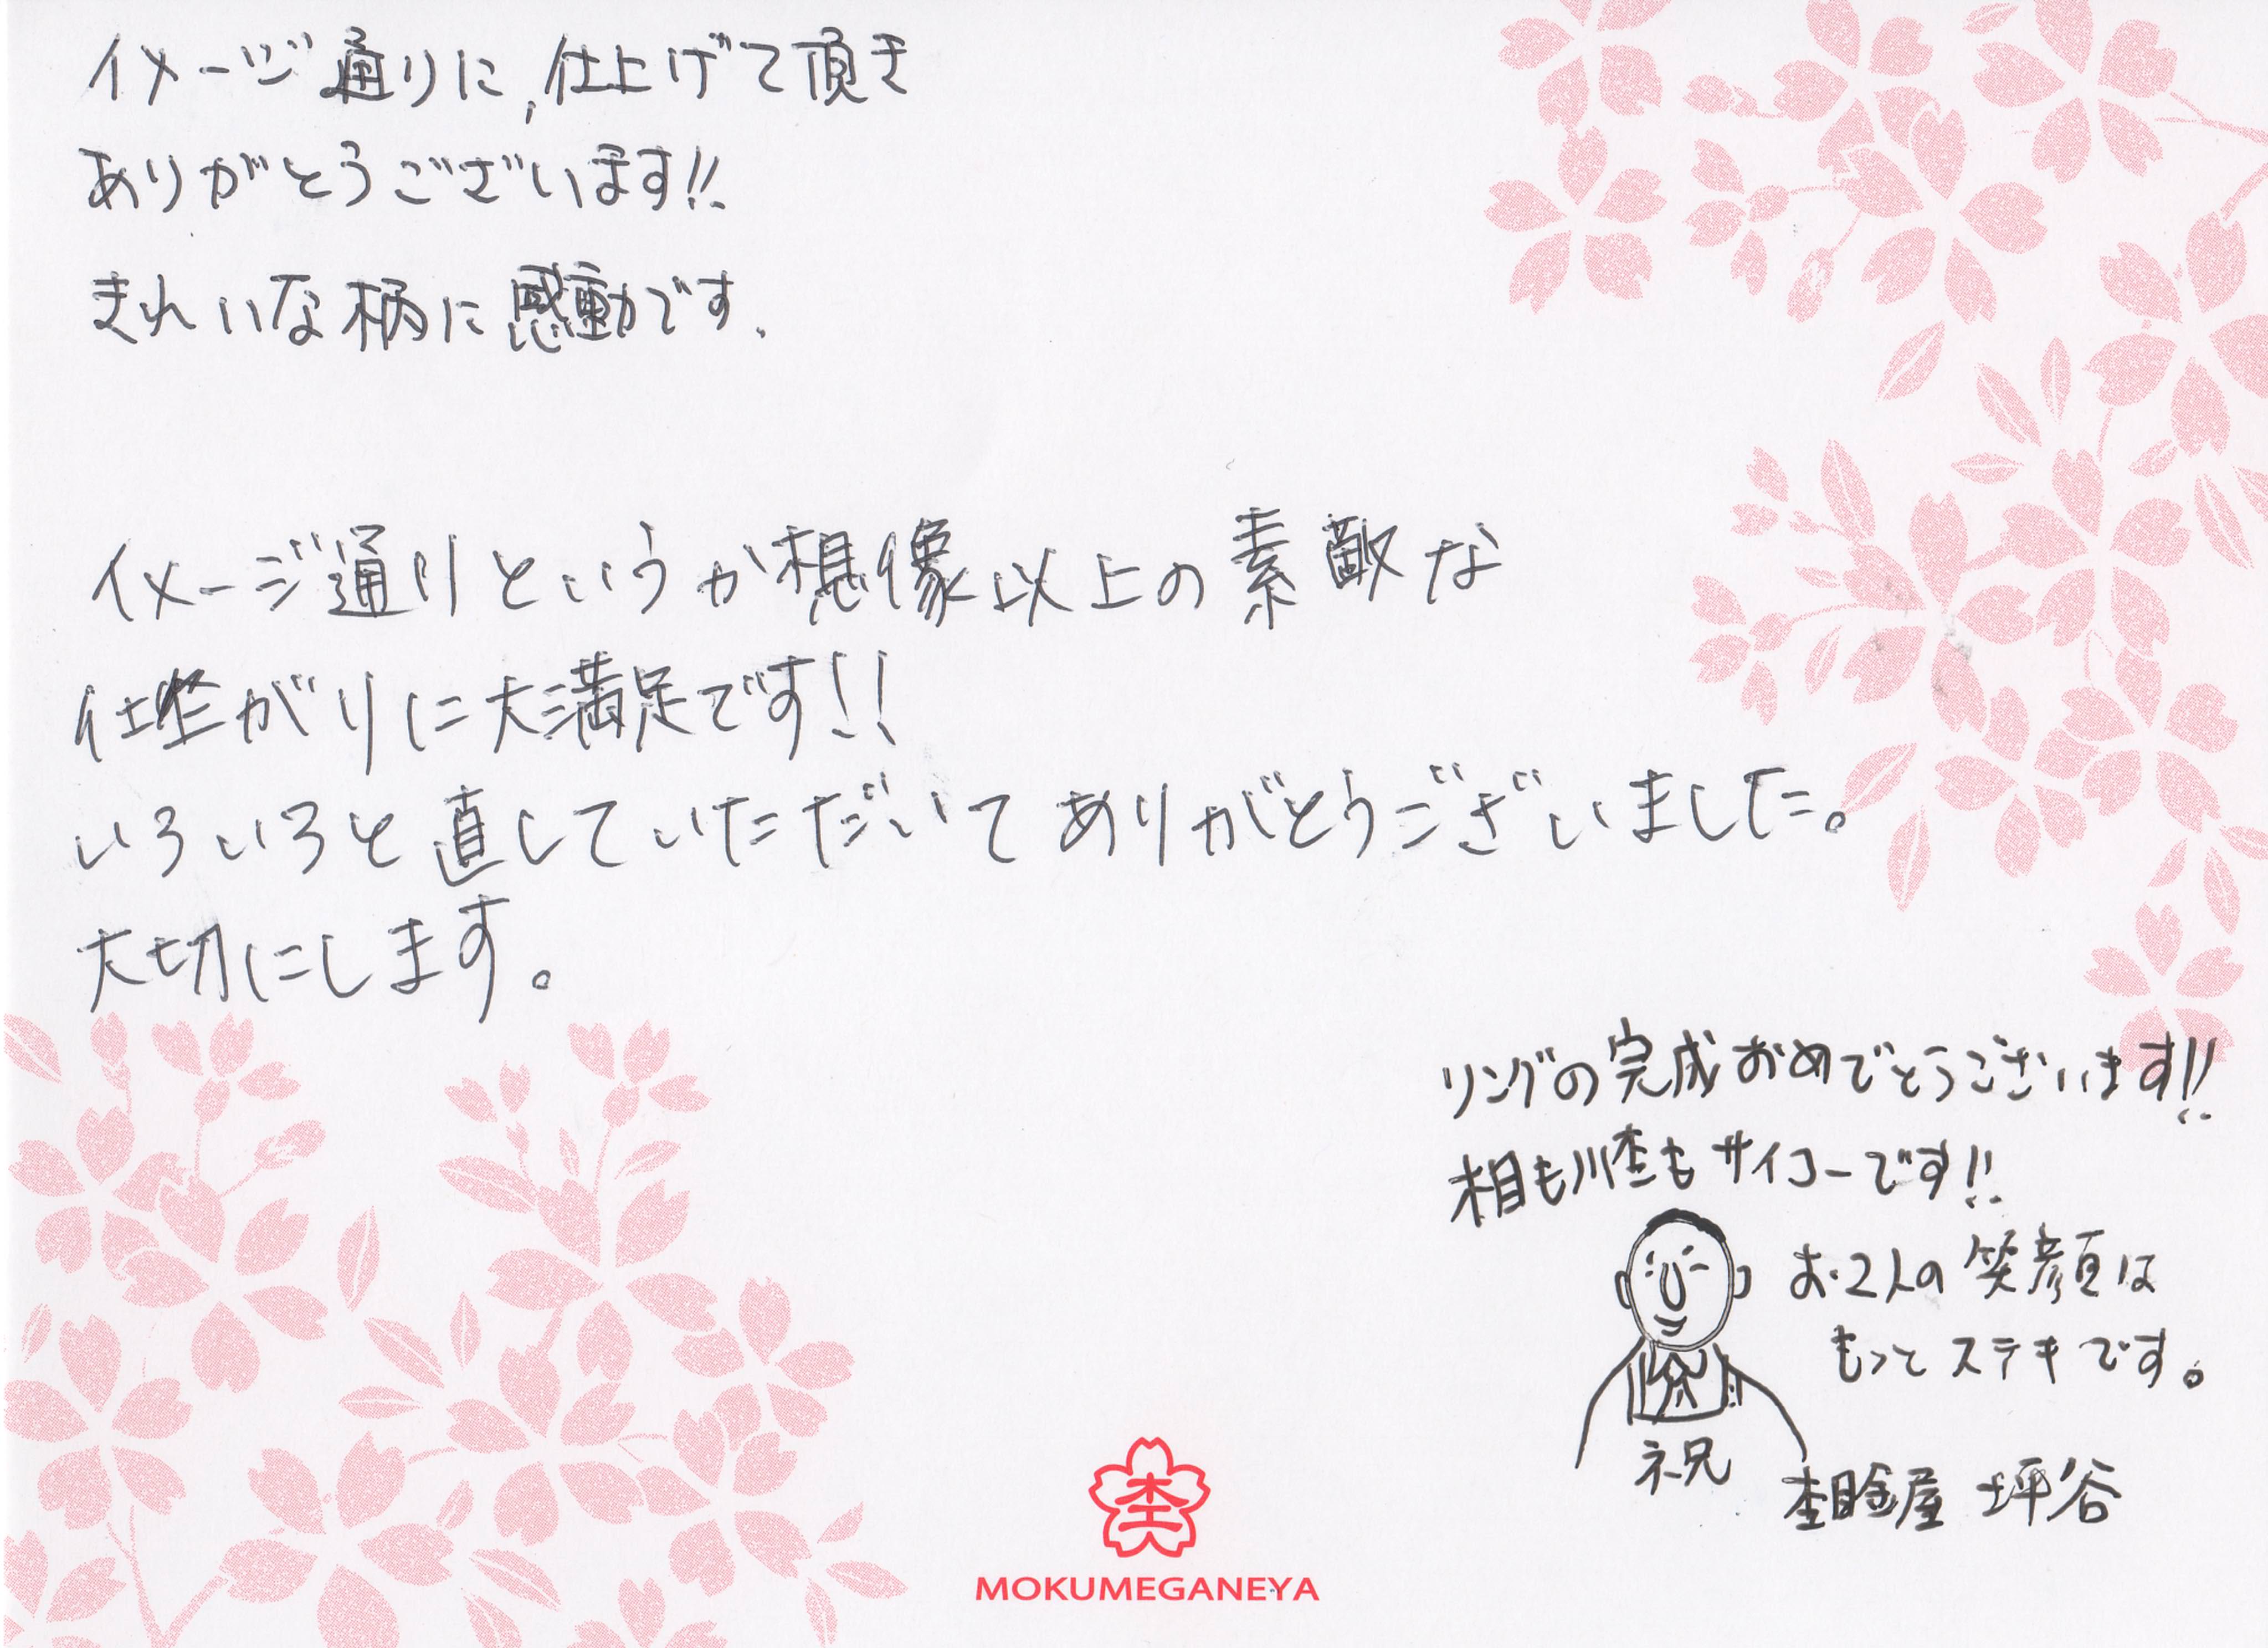 イメージ通りに、仕上げて頂き
ありがとうございます!!
きれいな柄に感動です、
イメージ通りというか想像以上の素敵な
仕上がりに大満足です!!
いろいろと直していただいてありがとうございました。
大切にします。
リングの完成おめでとうございます!!
相もサイコーです!!
お2人の笑顔は
もっとステキです。
祝
杢目金屋 坪谷
杢
MOKUMEGANEYA